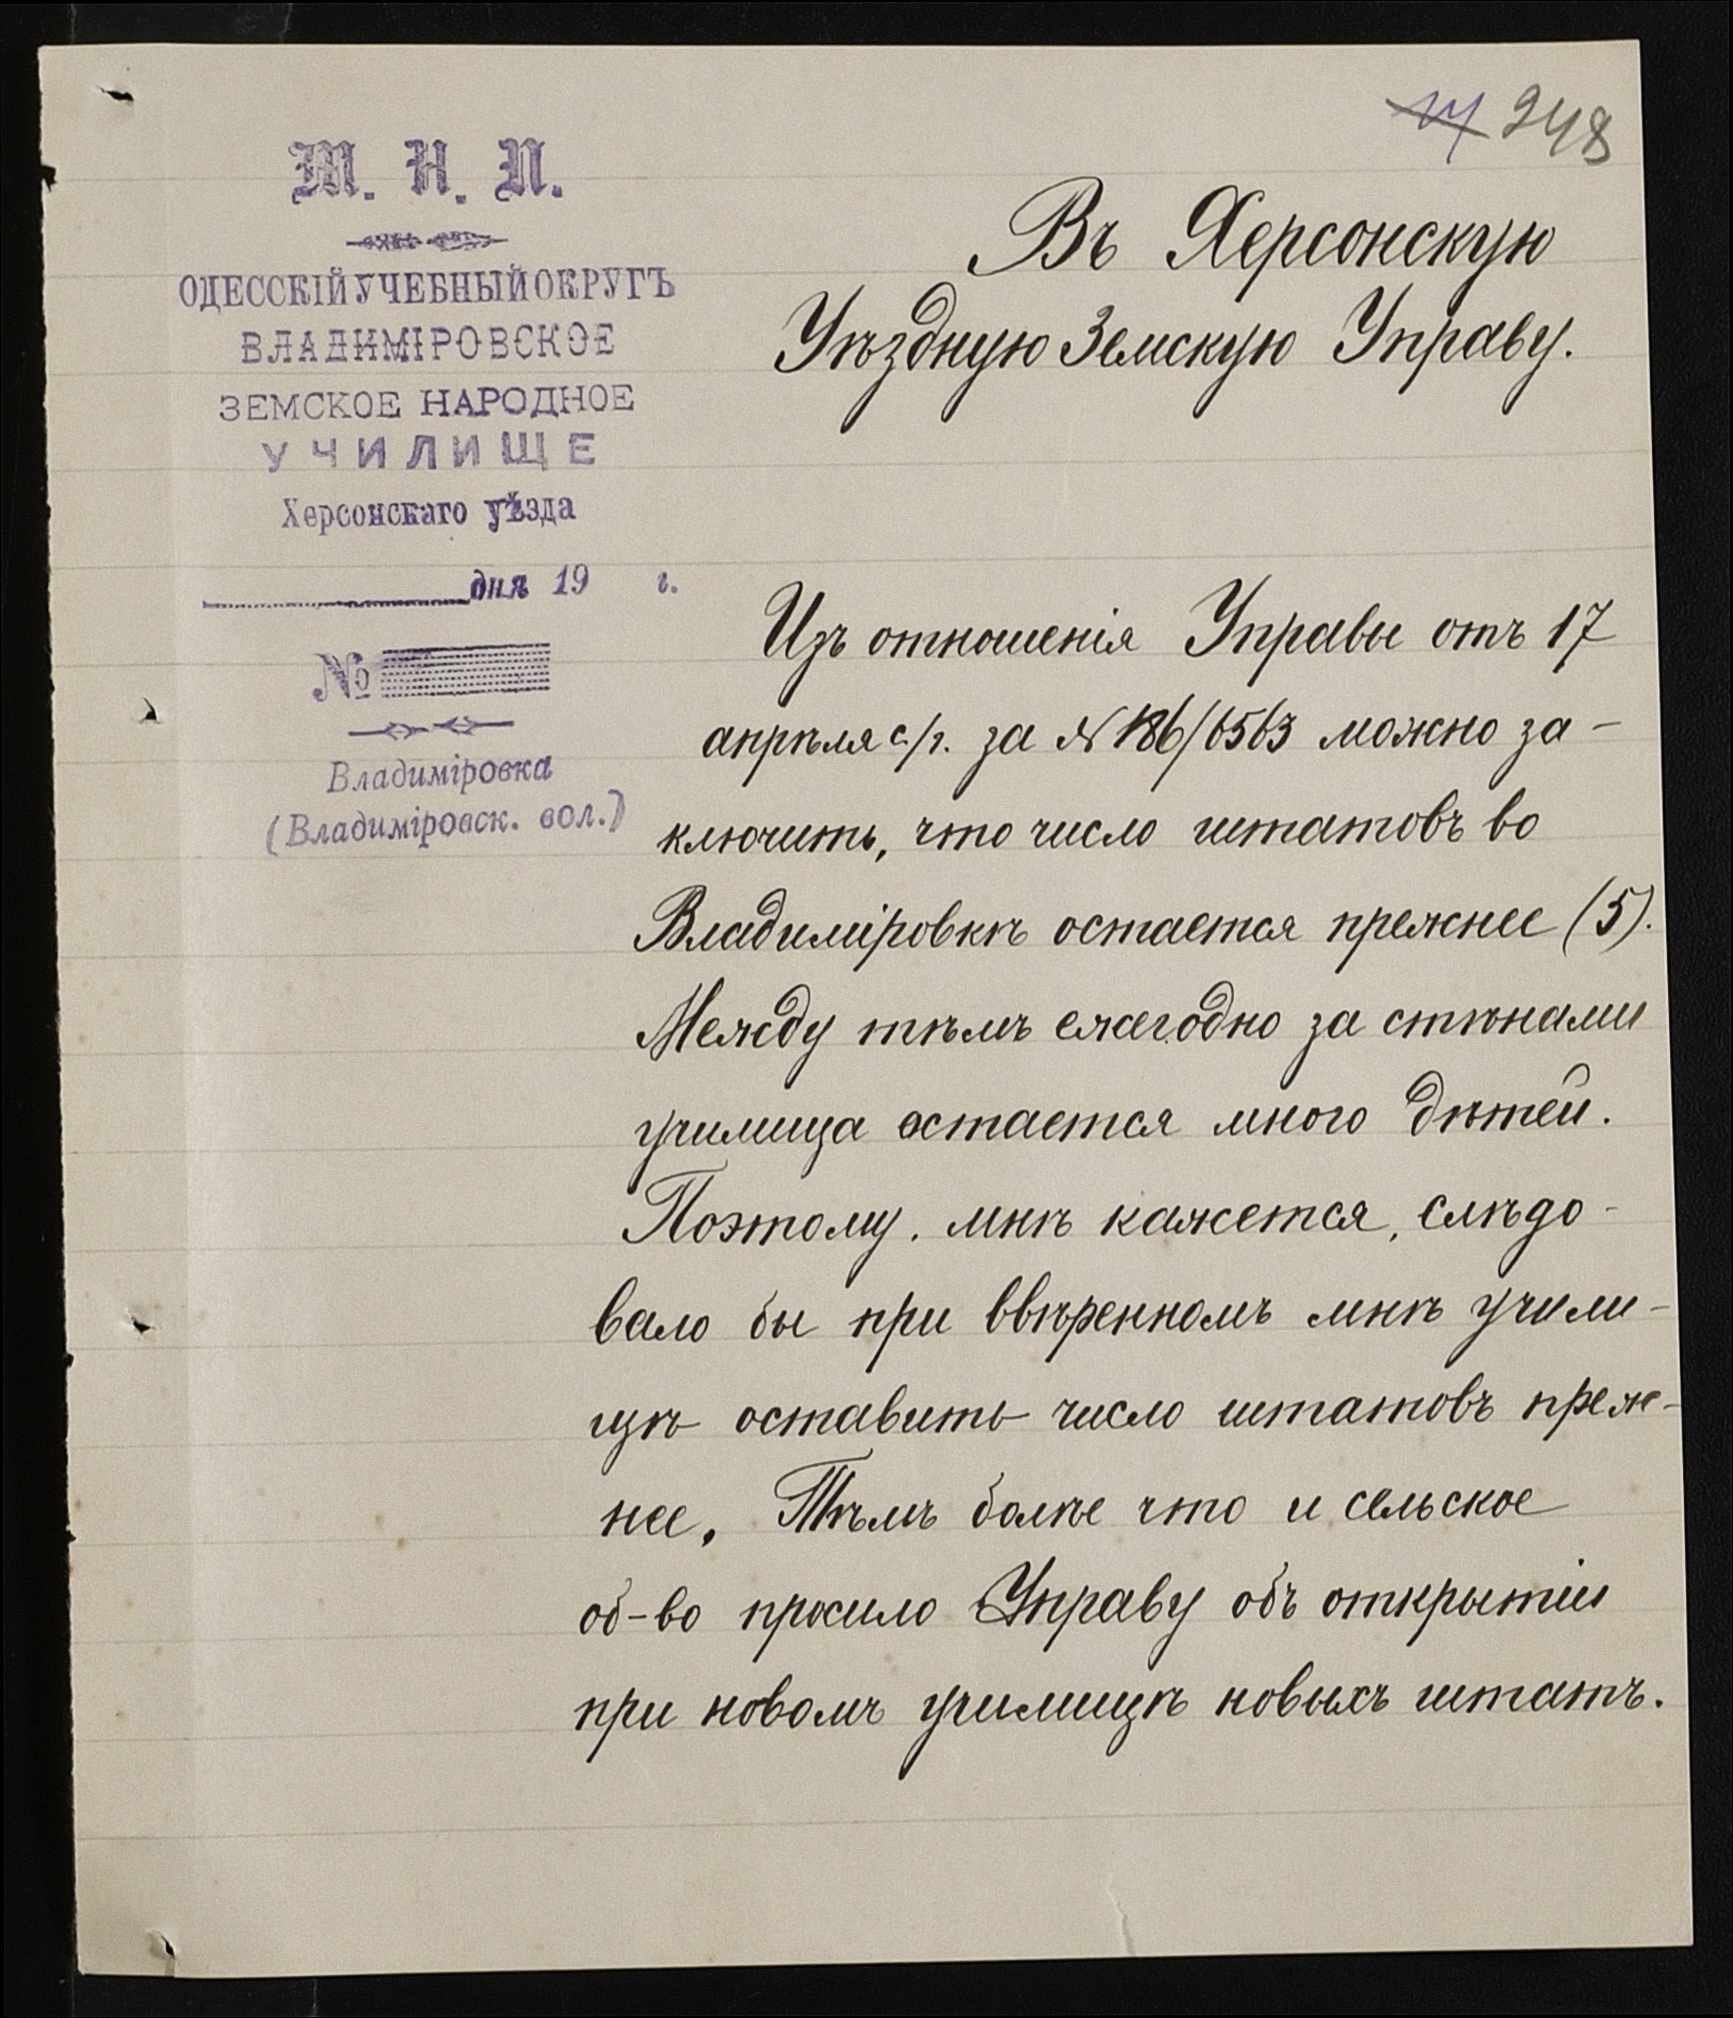 248
М. Н. П.
ОДЕССКІЙ УЧЕБНЫЙ ОКРУГЪ
ВЛАДИМІРОВСКОЕ
ЗЕМСКОЕ НАРОДНОЕ
УЧИЛИЩЕ
Херсонскаго уѣзда
дня 19 г.
№
Владиміровка
(Владиміровск. вол.)
Въ Херсонскую
Уѣздную Земскую Управу.
Изъ отношенія Управы отъ 17
апрѣля с/г. за № 186/6563 можно за-
ключить, что число штатовъ во
Владиміровкѣ остается прежнее (5).
Между тѣмъ ежегодно за стѣнами
училища остается много дѣтей.
Поэтому, мнѣ кажется, слѣдо-
вало бы при ввѣренномъ мнѣ учили-
щѣ оставить число штатовъ преж-
нее. Тѣмъ болѣе что и сельское
об-во просило Управу объ открытіи
при новомъ училищѣ новыхъ штатъ.